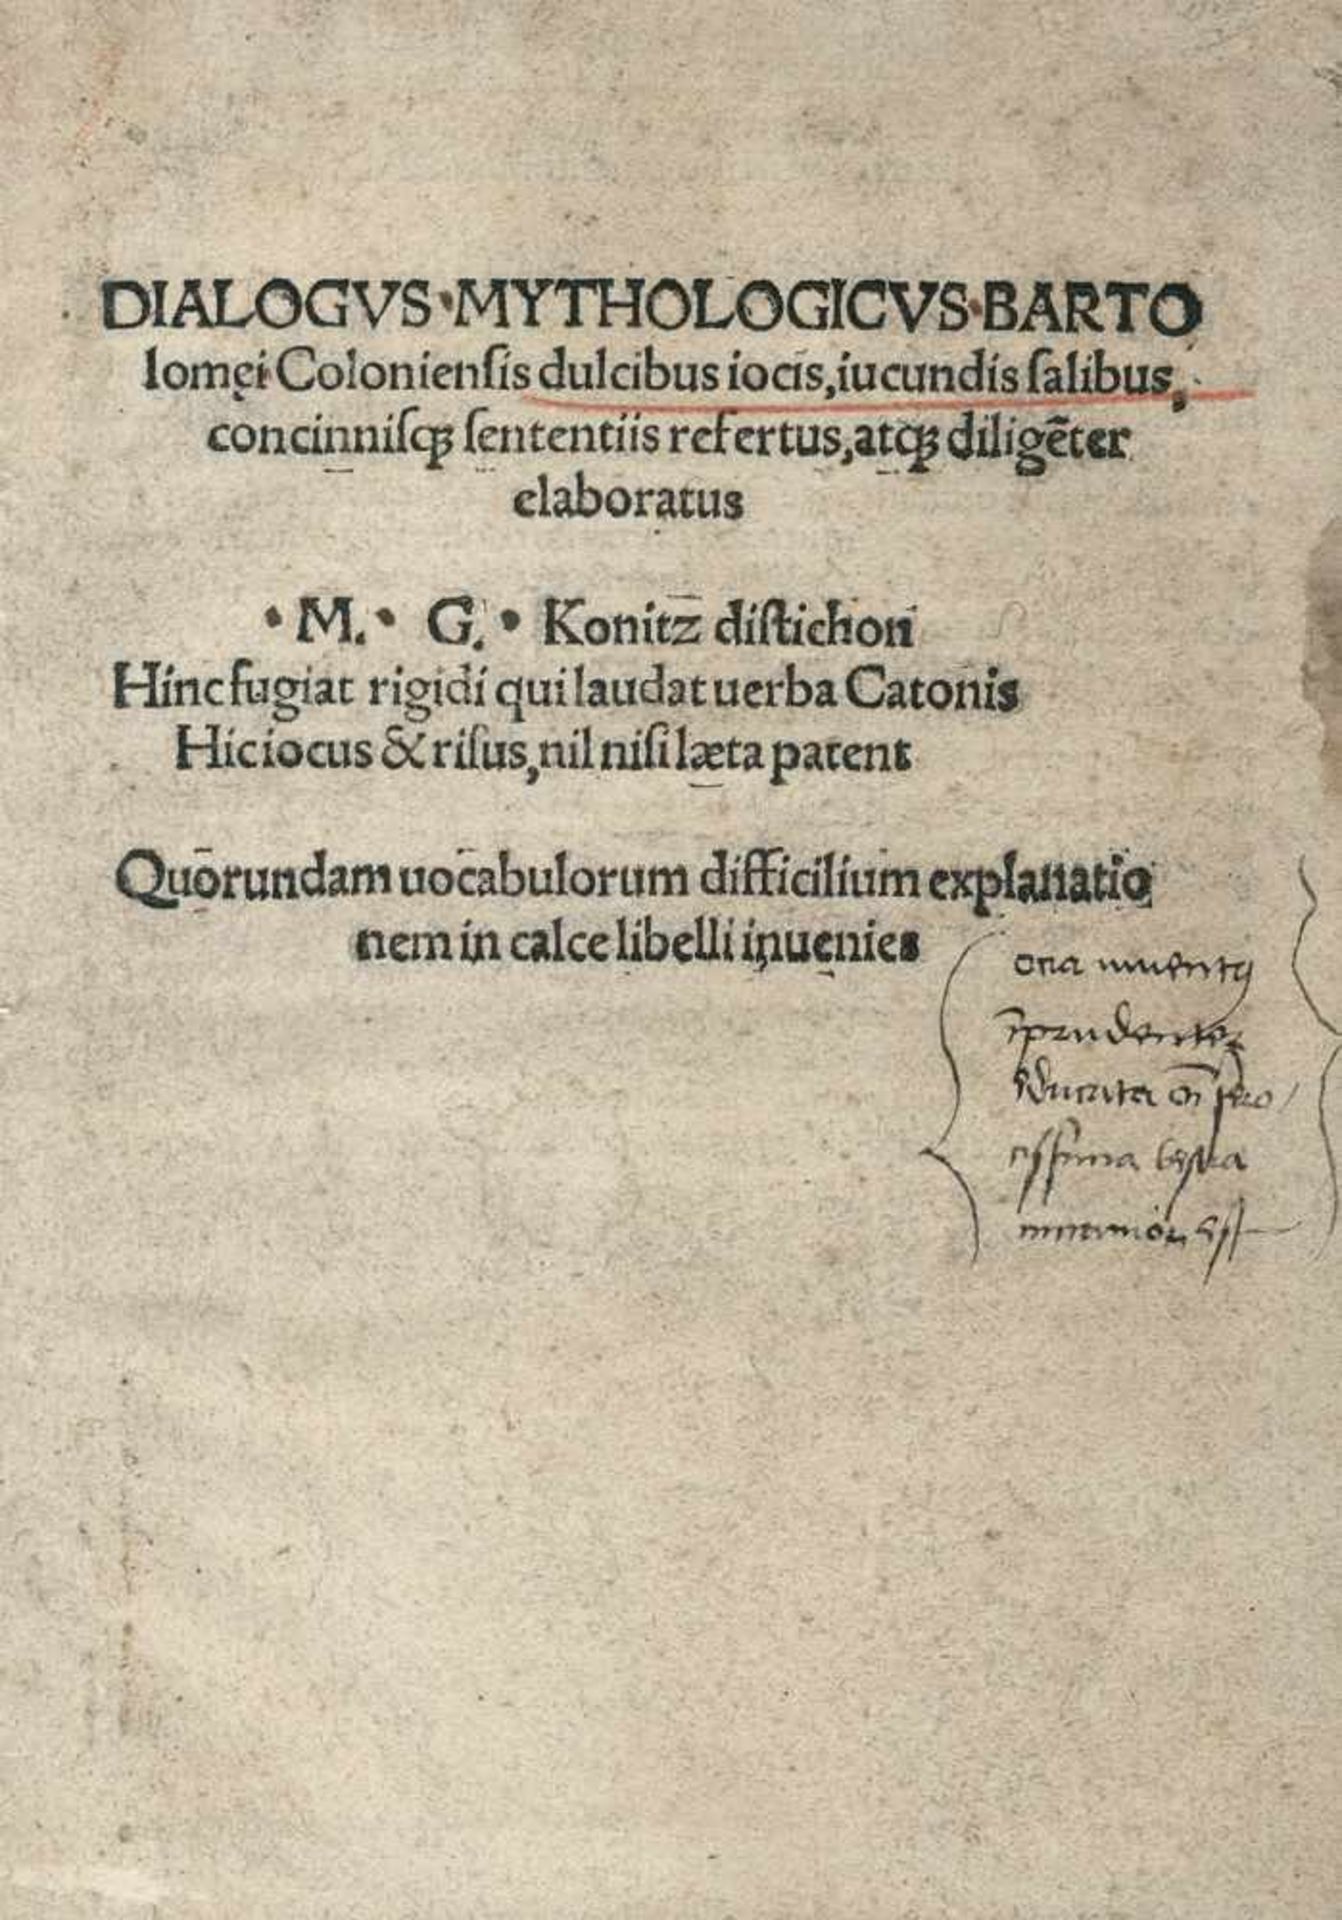 DIALOGVS·MYTHOLOGICVS·BARTO
lomęi Colonienſis dulcibus iocis, iucundis ſalibus,
concinniſqꝫ ſententiis refertus, atqꝫ diligẽter
elaboratus
·M.· G.· Konitz diſtichon
Hinc fugiat rigidi qui laudat uerba Catonis
Hic iocus & riſus, nil niſi læta patent
Quorundam uocabulorum difficilium explanatio
nem in calce libelli inuenies